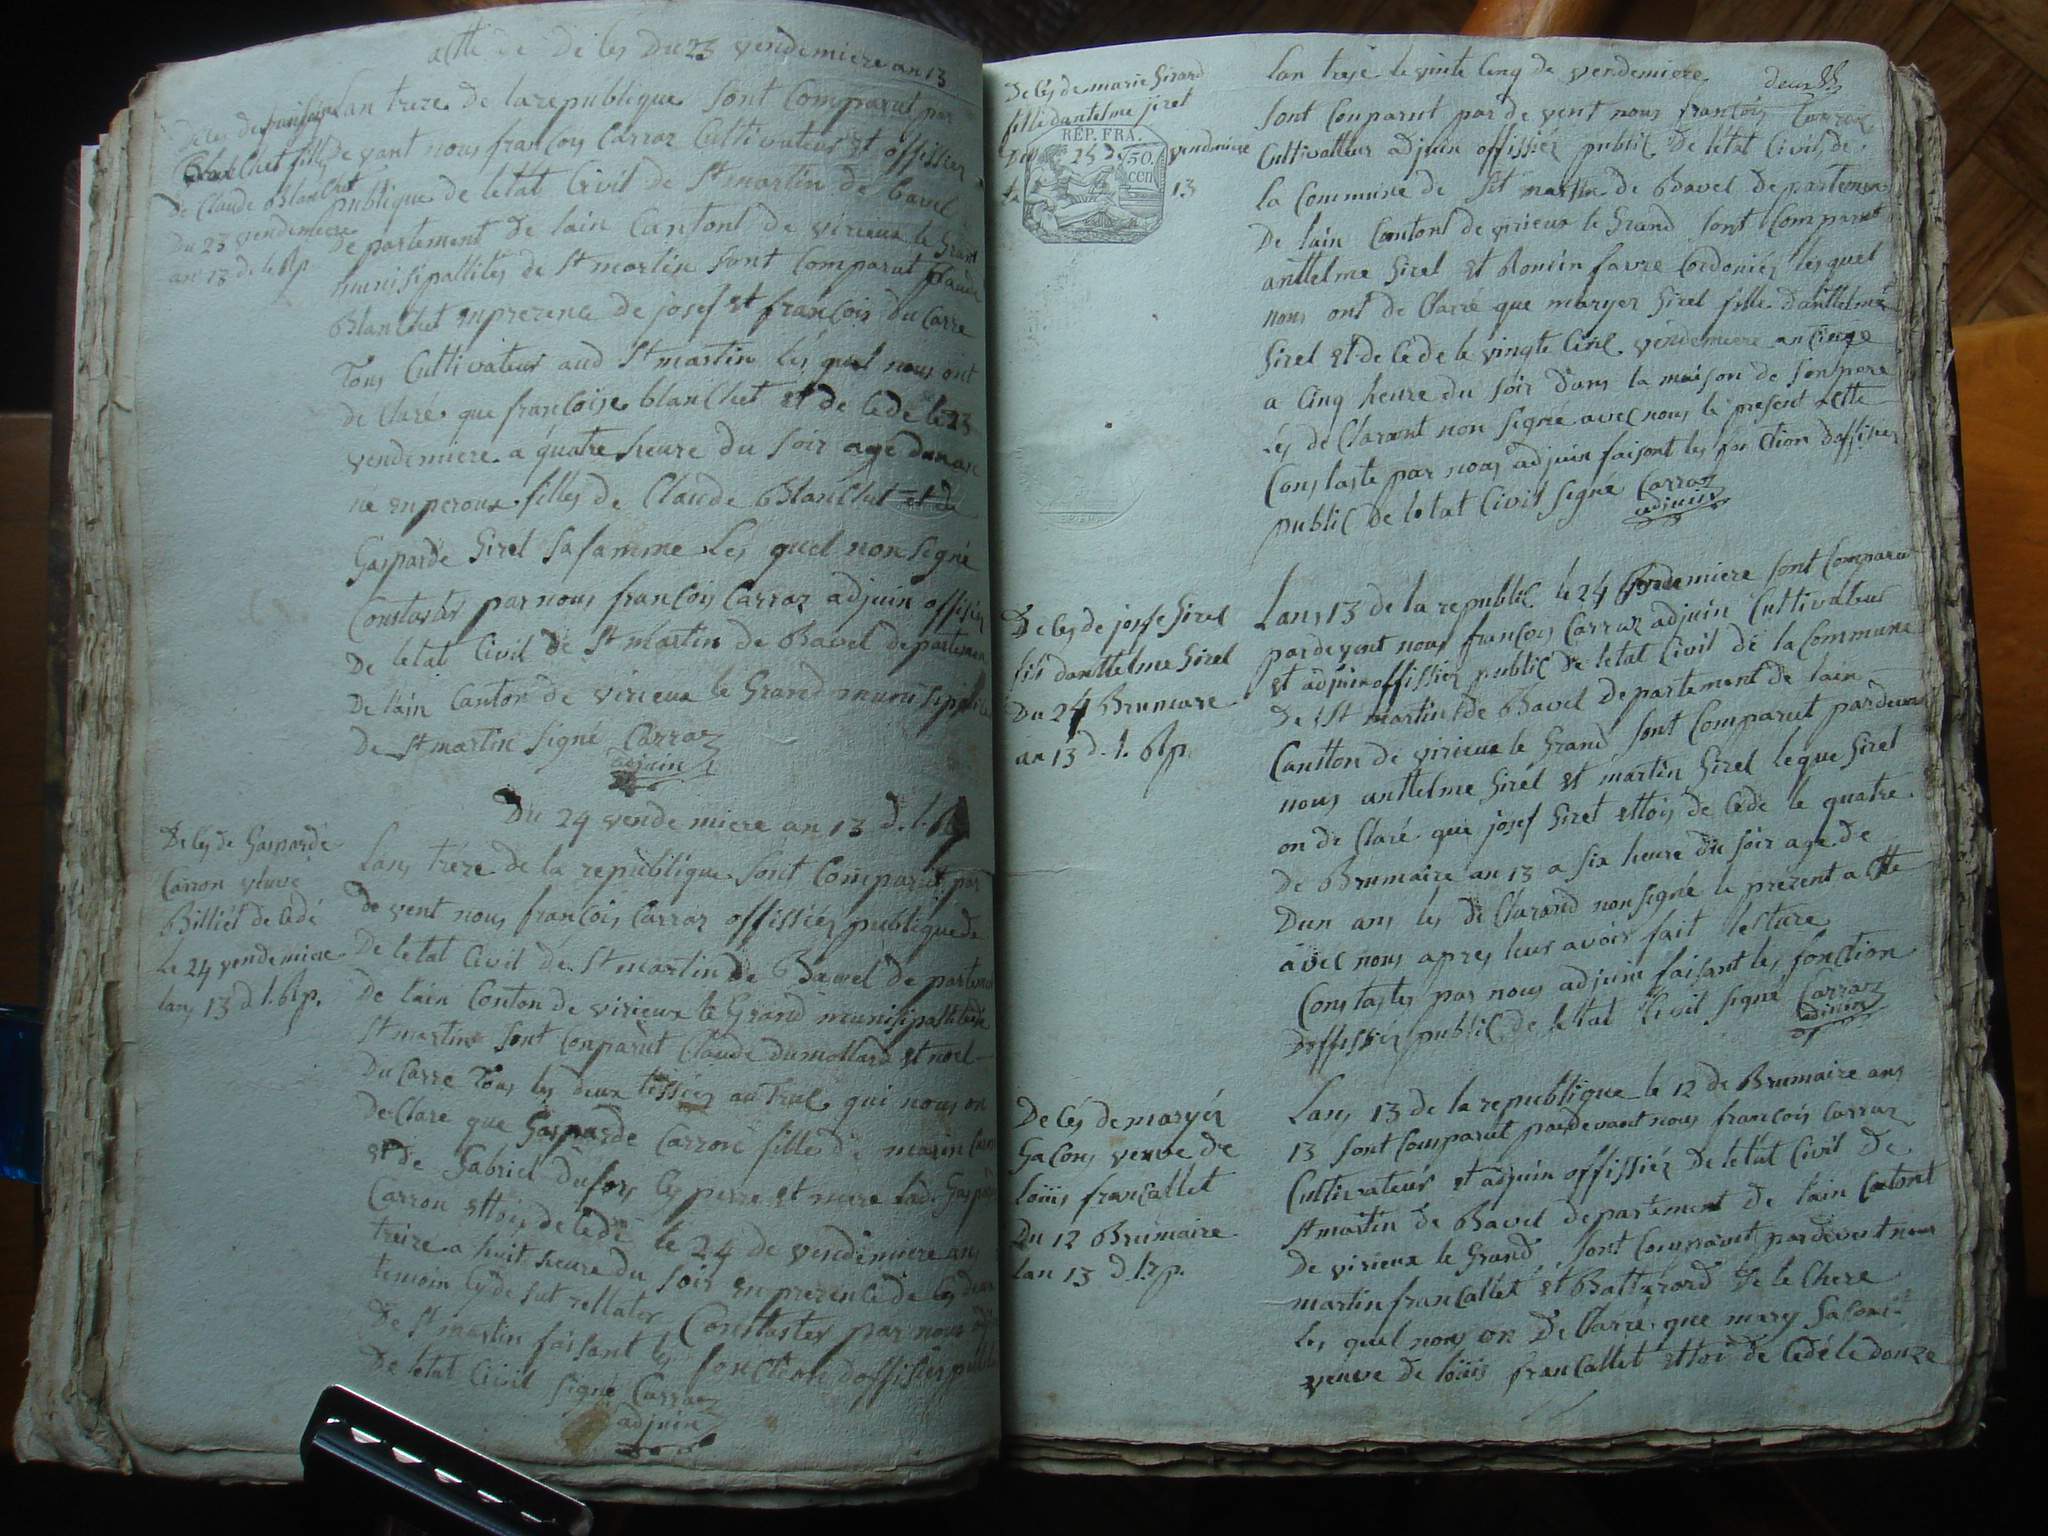 actte de De les Du 23 vendemiere an 13
De les de fransoise
Blanchet fille
De Claude Blanchet
Du 23 vendemiere
an 13 de le Rp
Lan treze de la republique sont Comparut par
De vant nous francois Carraz Cultivateur Et offissier
publique de letat Civil de St martin de bavel
De partement De lain Cantont de virieux le Grand
munisipallités de St martin sont Comparut Claude
Blanchet en prezence de josef Et francois Du Carre
Tous Cultivateur aud St martin les quel nous ont
de Claré que francoise blanchet Et de Cede le 23
vendemiere a quatre heure du soir agé dun an
né en peroux filles de Claude Blanchet et de
Gasparde Sirel sa famme Les quel non signé
Constater par nous francois Carraz adjuin offisier
De letat Civil de St martin de Bavel departemen
De lain Canton de virieux le Grand munisipalité
De St martin signé Carraz
adjuin
Du 24 vende miere an 13 d. l. R
De les de Gasparde
Carron veuve
Billiet de Cédé
Le 24 vendemiere
lans 13 d l. Rp.
Lans tréze de la republique sont Comparut par
de vent nous francois Carraz offissiér publique de
De letat Civil de St martin de Bawel de partement
De lain Conton de virieux le Grand munisipallité de
St martin sont Conparut Claude dumollard Et noel
Du Carre Tous les deux tissiez au Trul qui nous on
De Clare que Gasparde Carroné fille de marin
Et de Gabriel dufors les perre Et mere lad. Gasparde
Carron Ettois de Cede le 24 de vendemiere an
treize a huit heure du soir en prezence de les deux
temoin cy de sut rellater Consttaster par nous
De St martin faisant les fonction doffisier public
De letat Civil signé Carraz
adjuin
deux
De Cés de marie Sirard
fille dantelme sirel
RÉP. FRA.
50.
cen
Du 25 de vendemiere
13
Lan treze le vinte Cinq de vendemiere
sont Conparut par de vent nous francois Carraz
Cultivatteur adjuin offissiér public De létat Civil de
la Commune de St martin de Bavel de partemen
De lain Contont de virieux le Grand sont Comparut
anttelme Sirel Et Romain favre Cordoniér les quel
nous ont de Clarré que maryer Sirel fille Danttelme
Sirel Et de Cede le vingte Cinl vendemiere an
a Cinq heure du soir dans la maison de son pere
Lés de Clarant non signé avec nous le present actte
Constaste par nous adjuin faisont les fon Ction doffisier
public De letat Civil signé Carraz
adjuin
De Cés de josfe Sirel
fils danttelme Sirel
Du 24 Brumere
an 13 d. l. Rp.
Lans 13 de la republic le 24 Vendemiere sont Comparu
pardevent nous francois Carraz adjuin Cultivateur
Et adjuin offissier public de letat Civil de la Commune
De St martin de Bavel departement de lain
Cantton de virieux le Grand sont Comparut pardevan
nous anttelme Sirél Et martin Sirel leque Sirel
on de Claré que josef Sirel ettois de Cede le quatre
De Brumaire an 13 a six heure du soir age de
Dun ans les de Clarand non signé le prezent actte
avec nous apres leur avoir fait lecture
Constaster par nous adjuin faisant les fonction
doffissier public de letat Civil signé Carraz
adjuin
De Cés de maryér
Sacons veuve de
louis francallet
Du 12 Brumaire
Lan 13 d l. rp.
Lans 13 de la republique le 12 de Brumaire ans
13 sont Comparut pardevant nous francois Carraz
Cultivateur Et adjuin offissiér De letat Civil de
St martin de Bavel departement de lain Cantont
De virieux le Grand sont Comparut pardevent nous
martin francallet Et Baltazord de le Chere
Les quel nous on De Clarré que mary Saconi
veuve de louis francallet Ettoi de Cedé le douze